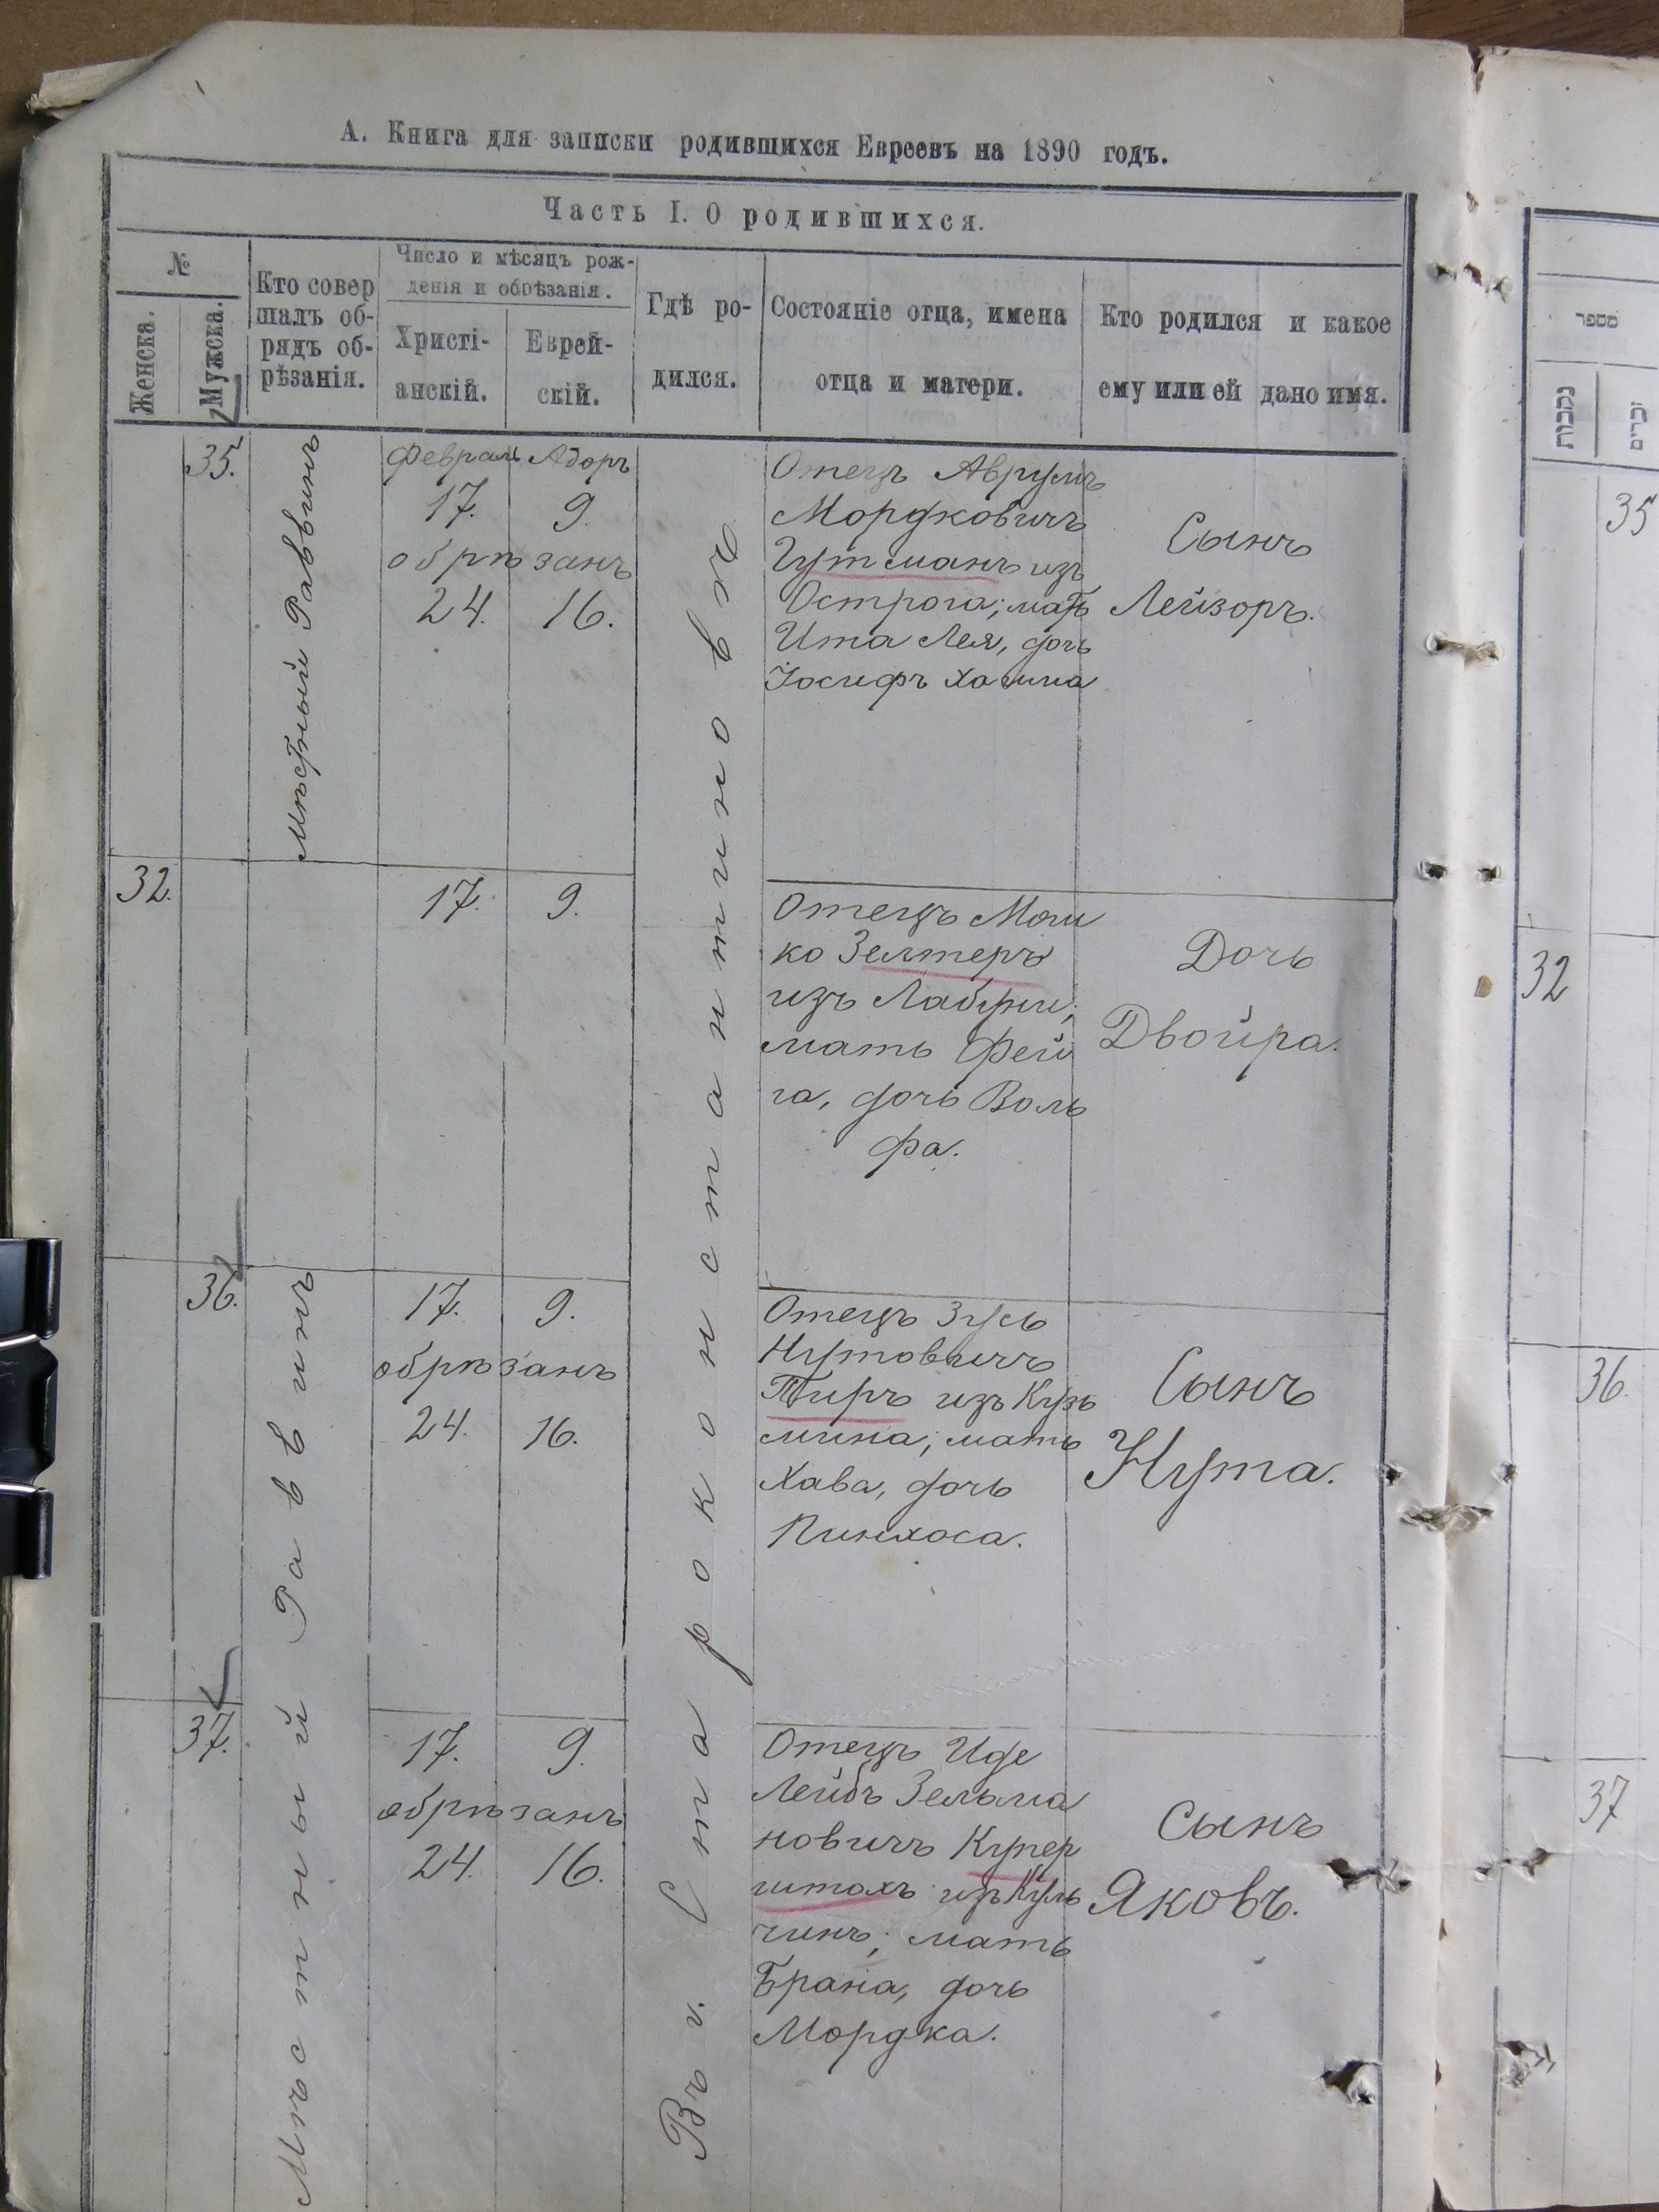 А. Книга для записки родившихся Евреевъ на 1890 годъ.
Часть I. О родившихся.
№
Женска.
Мужска.
Кто совер
шалъ об-
рядъ об-
рѣзанія.
Число и мѣсяцъ рож-
денія и обрѣзанія.
Христі-
анскій.
Еврей-
скій.
Гдѣ ро-
дился.
Состояніе отца, имена
отца и матери.
Кто родился и какое
ему или ей дано имя.
מספר
נקבות
זכרים
Въ г. Староконстантиновѣ
35.
Мѣстный Раввинъ
Февраль Адоръ
17. 9.
обрѣзанъ
24. 16.
Отецъ Аврумъ
Мордковичъ
Гутманъ изъ
Острога; мать
Ита Лея, дочь
Іосифъ Хаима
Сынъ
Лейзоръ.
35
32.
17. 9.
Отецъ Мош
ко Зелтеръ
изъ Лабуни;
мать Фей
га, дочь Воль
фа.
Дочь
Двойра.
32
36.
Мѣстный Раввинъ
17. 9.
обрѣзанъ
24. 16.
Отецъ Зусь
Нутовичъ
Тиръ изъ Кузь
мина; мать
Хава, дочь
Пинхоса.
Сынъ
Нута.
36.
37.
17. 9.
обрѣзанъ
24. 16.
Отецъ Иде
Лейбъ Зельма
новичъ Купер
штохъ изъ Куль
чинъ; мать
Брана, дочь
Мордка.
Сынъ
Яковъ.
37